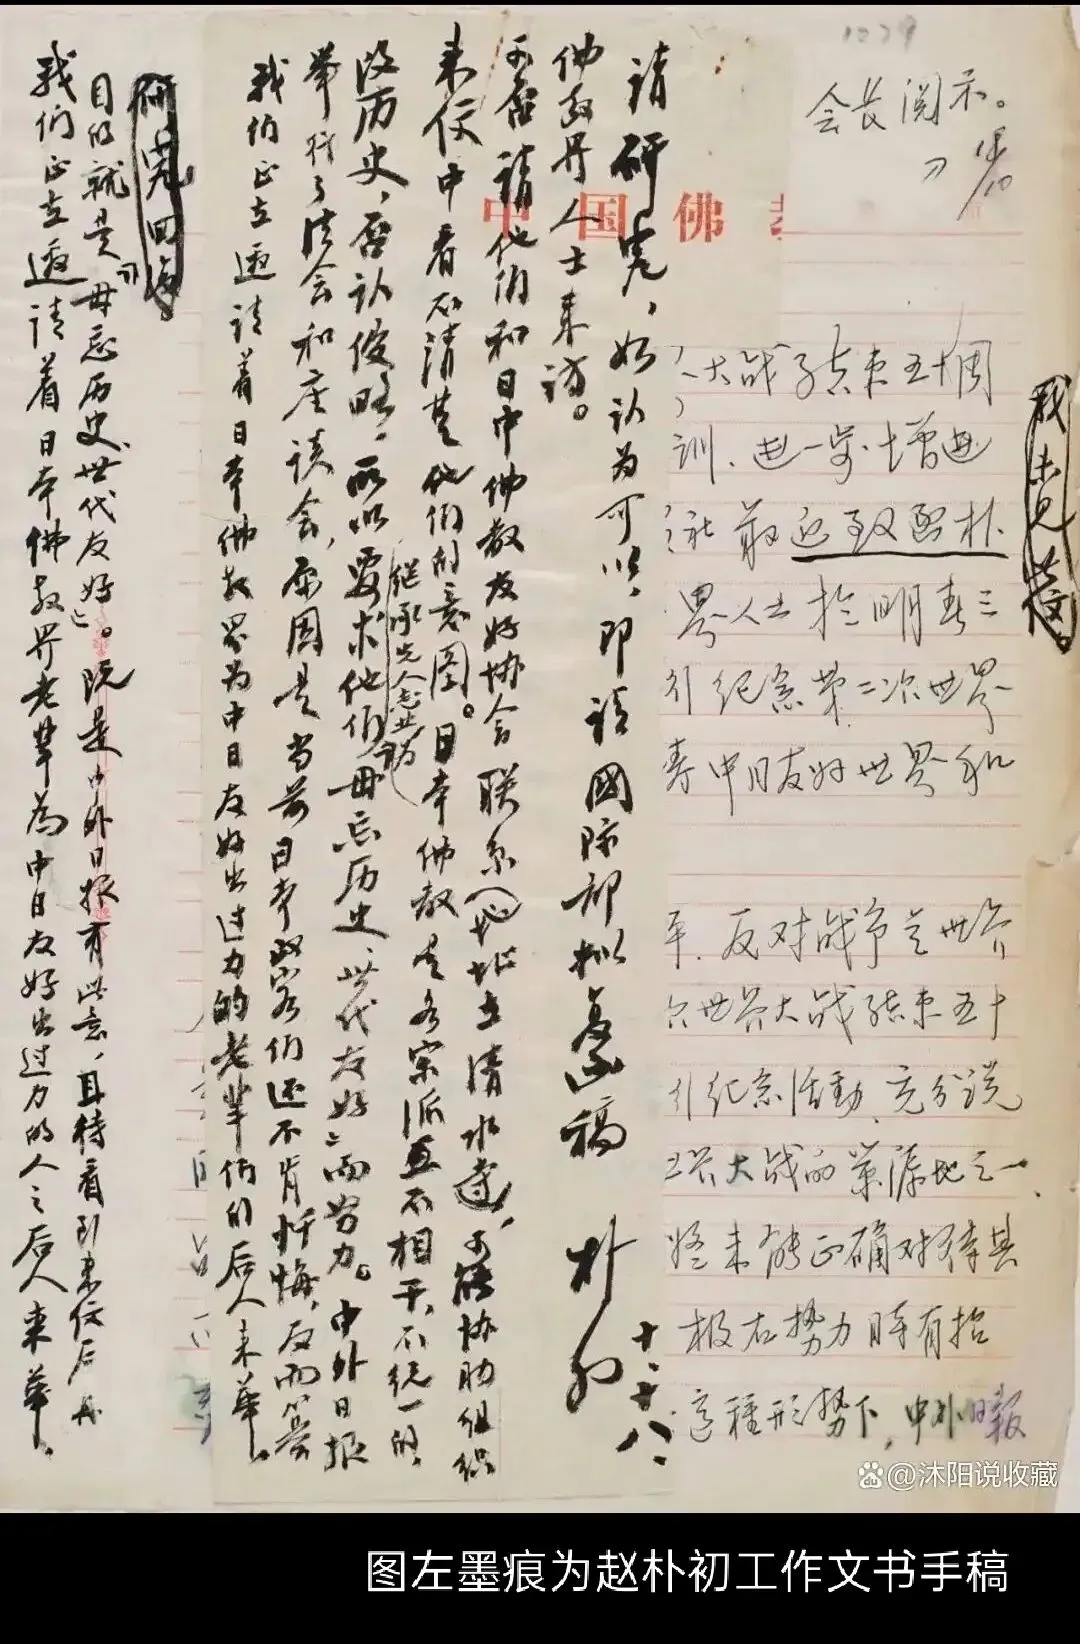 1079
会长阅示。
中国佛
大战结束五十周
训.进一步增进
前近致函朴
界人士於明春三
行纪念第二次世界
寿中日友好世界和
平.反对战争是世界
次世界大战结束五十
行纪念活动,充分说
世界大战的策源地之一、
终未能正确对待其
极右势力时有抬
這種形势下,中外日報
我未见
请研究,如认为可以,即请國际部拟复函稿 朴初 十、十八、
佛教界人士来访。
可否请他们和日中佛教友好协会联系(地址在清水寺),可能协助组织
来信中看不清楚他们的意图。日本佛教是各宗派互不相干,不统一的,
继承先人志业为
段历史,否认侵略,所以要求他们毋忘历史、世代友好而努力。中外日报
举行了法会和座谈会,原因是当前日本政客们还不肯忏悔,反而篡
我们正在邀请着日本佛教界为中日友好出过力的老辈们的后人来華。
研究
目的就是“毋忘历史、世代友好”。既是中外日报有此意,且待看到来信后再
我们正在邀请着日本佛教界老辈為中日友好出过力的人之后人来華。
@沐阳说收藏
图左墨痕为赵朴初工作文书手稿